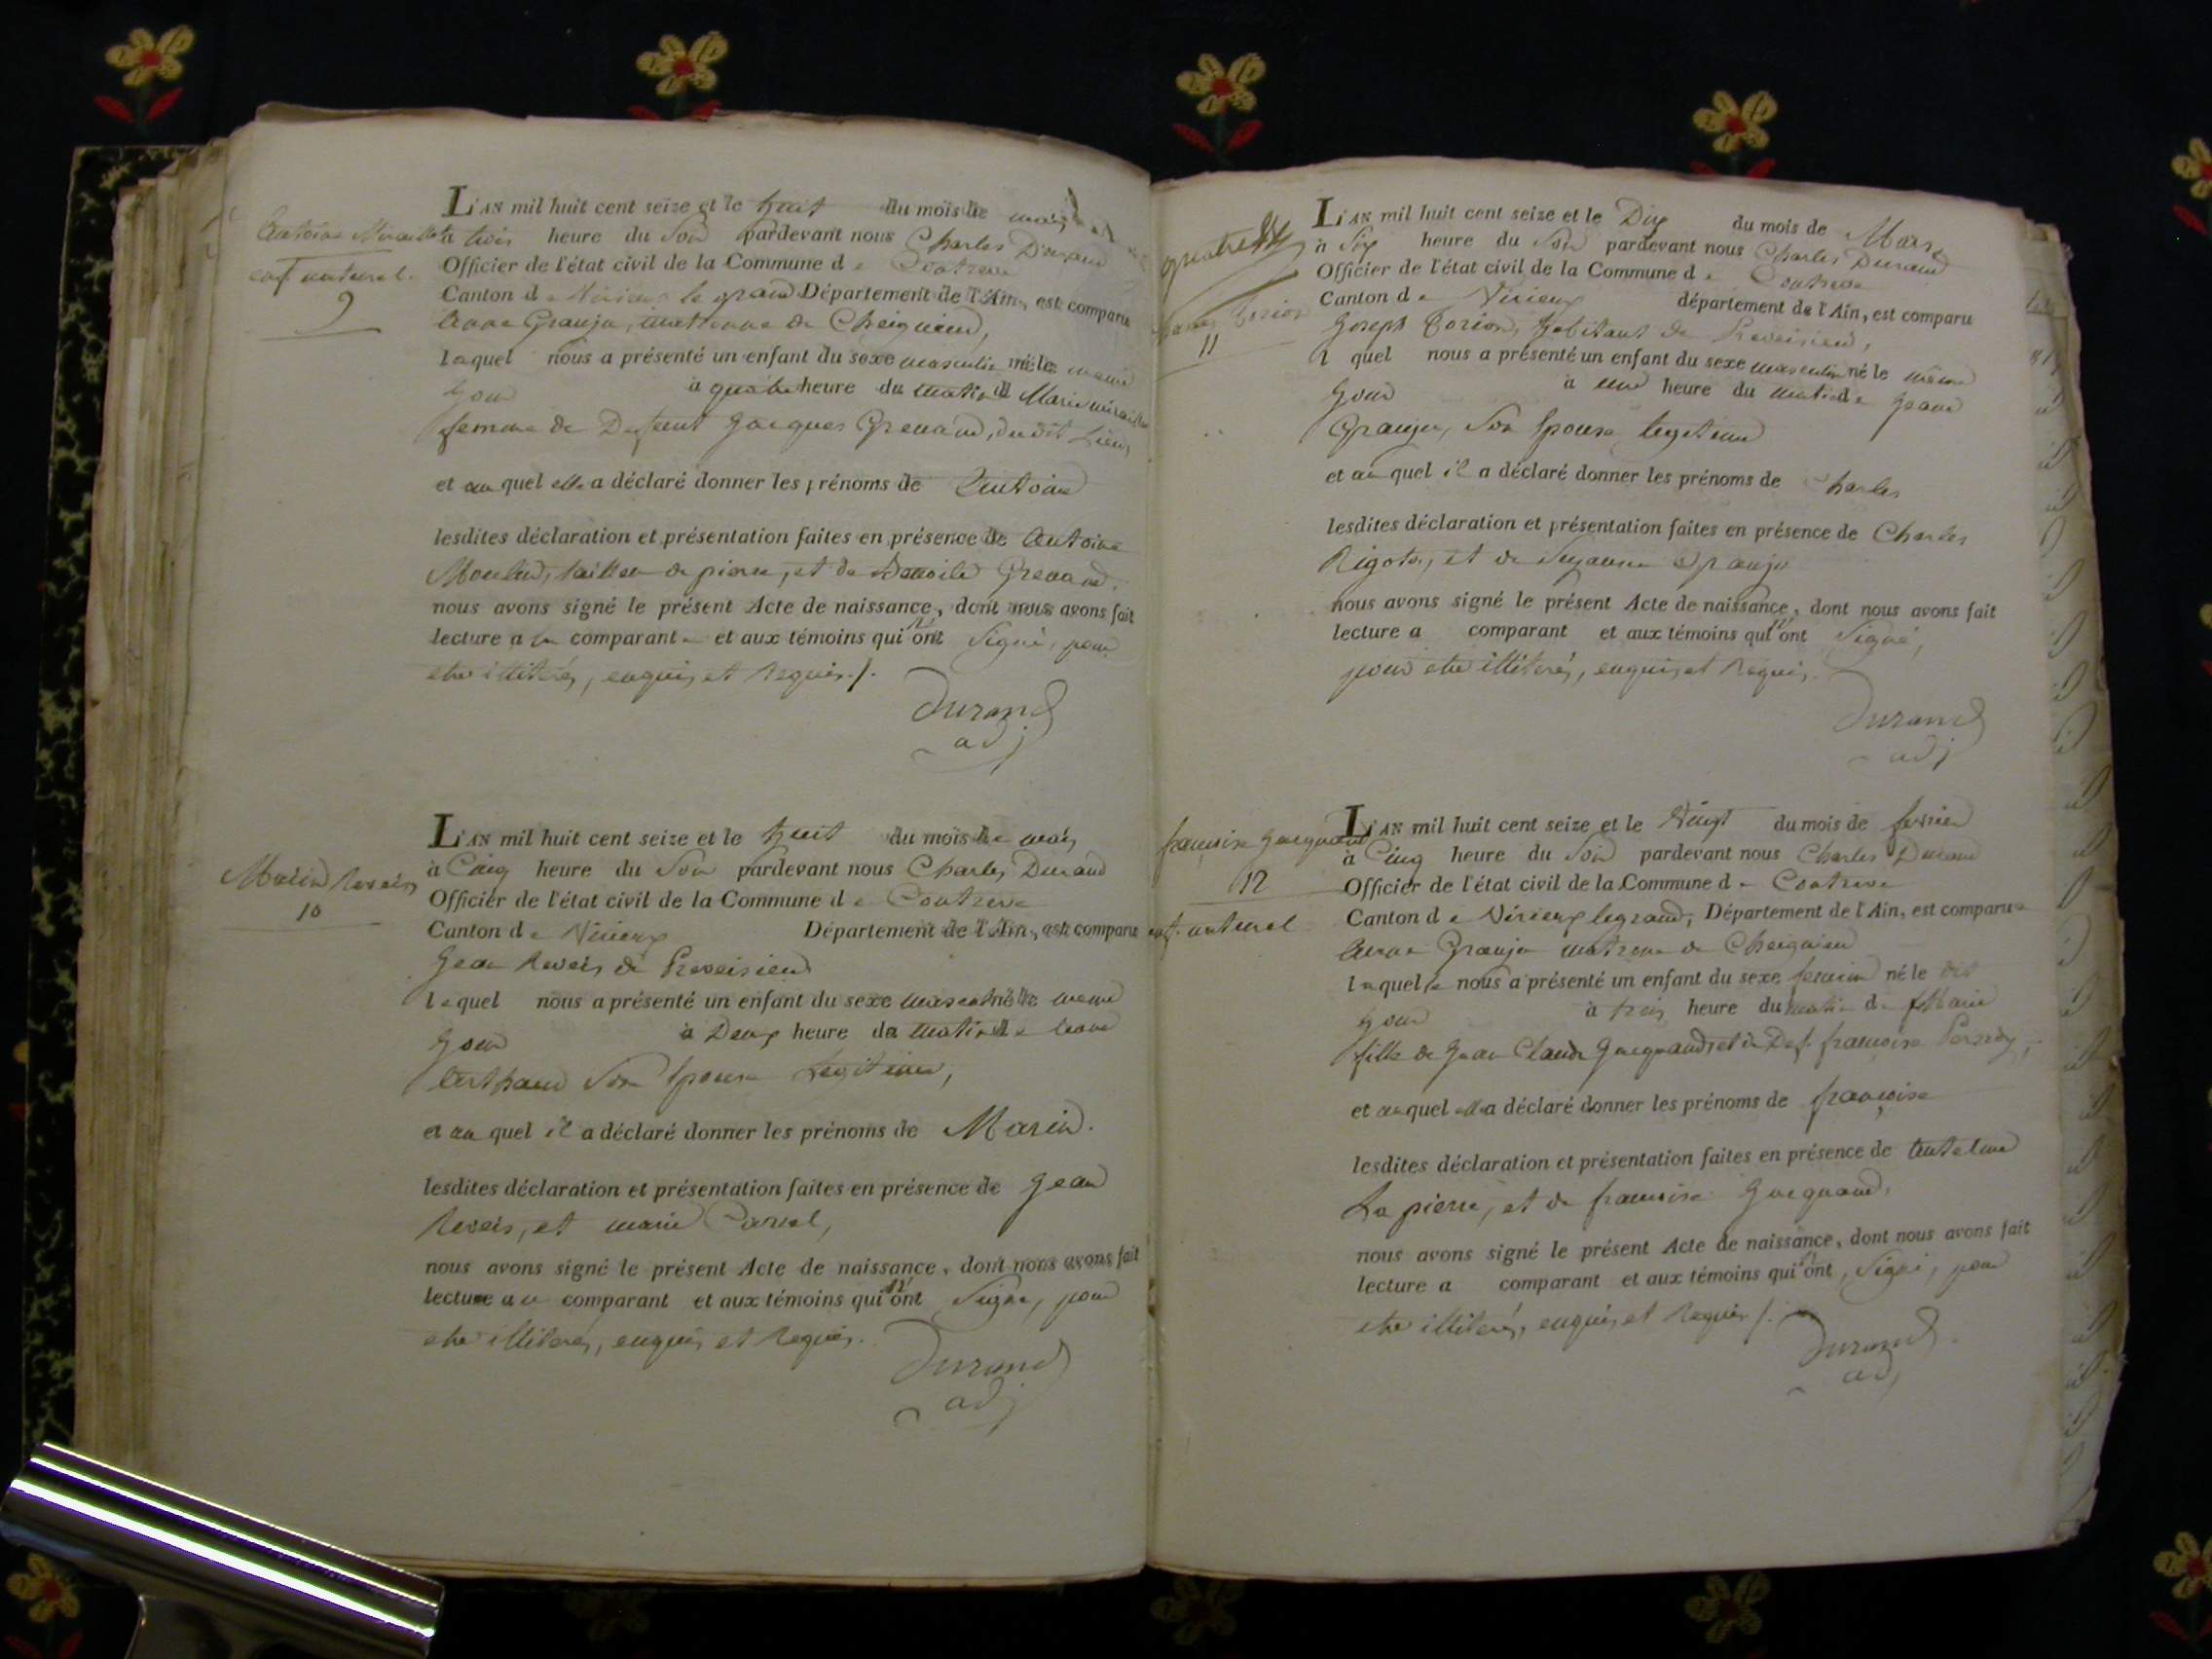 Antoine
enf. naturel.
9
L'AN mil huit cent seize et le huit du mois de mars
à trois heure du Soir pardevant nous Charles Durand
Officier de l'état civil de la Commune de Contrevoz
Canton de Virieux le grand Département de l'Ain, est comparu
Anne Granju, matrone de Cheignieu,
laquel nous a présenté un enfant du sexe masculin né le meme
jour à quatre heure du matin d Marie
femme de Defunt Jacques Grenand, dudit Lieu,
et au quel elle a déclaré donner les prénoms de Antoine
lesdites déclaration et présentation faites en présence de Antoine
Moulin, tailleu de pierre, et de Grenand.
nous avons signé le présent Acte de naissance, dont nous avons fait
lecture a la comparante et aux témoins qui n'ont Signé, pour
etre illiterés, enquis et Requis./.
Durand
adj
Marin Reveis
10
L'AN mil huit cent seize et le huit du mois de mars
à Cinq heure du Soir pardevant nous Charles Durand
Officier de l'état civil de la Commune de Contrevoz
Canton de Virieux Département de l'Ain, est comparu
Jean Reveis de Preveisieu
lequel nous a présenté un enfant du sexe masculin né le meme
jour à Deux heure du matin de
Arthaud Son Epouse Legitime,
et au quel il a déclaré donner les prénoms de Marin.
lesdites déclaration et présentation faites en présence de Jean
Reveis, et marie
nous avons signé le présent Acte de naissance, dont nous avons fait
lecture au comparant et aux témoins qui n'ont Signé, pour
etre illiterés, enquis et Requis.
Durand
adj
11
L'AN mil huit cent seize et le Dix du mois de Mars
à Six heure du Soir pardevant nous Charles Durand
Officier de l'état civil de la Commune de Contrevoz
Canton de Virieux département de l'Ain, est comparu
Joseph habitant de Preveisieu,
l quel nous a présenté un enfant du sexe masculin né le même
jour à une heure du matin de Jeanne
Granju, Son Epouse legitime
et au quel il a déclaré donner les prénoms de Charles
lesdites déclaration et présentation faites en présence de Charles
Rigot, et de Suzanne Granju
nous avons signé le présent Acte de naissance, dont nous avons fait
lecture a comparant et aux témoins qui n'ont Signé,
pour etre illiterés, enquis et Requis.
Durand
adj
françoise Jacquand
12
enf. naturel
L'AN mil huit cent seize et le Vingt du mois de fevrier
à Cinq heure du Soir pardevant nous Charles Durand
Officier de l'état civil de la Commune de Contrevoz
Canton de Virieux legrand, Département de l'Ain, est comparue
Anne Granju matrone de Cheignieu
laquelle nous a présenté un enfant du sexe feminin né le dit
jour à trois heure du matin de Marie
fille de Jean Claude Jacquand, et de Def. françoise
et auquel elle a déclaré donner les prénoms de françoise
lesdites déclaration et présentation faites en présence de Antelme
La pierre, et de françoise Jacquand,
nous avons signé le présent Acte de naissance, dont nous avons fait
lecture a comparant et aux témoins qui n'ont Signé, pour
etre illiterés, enquis et Requis./.
Durand
adj